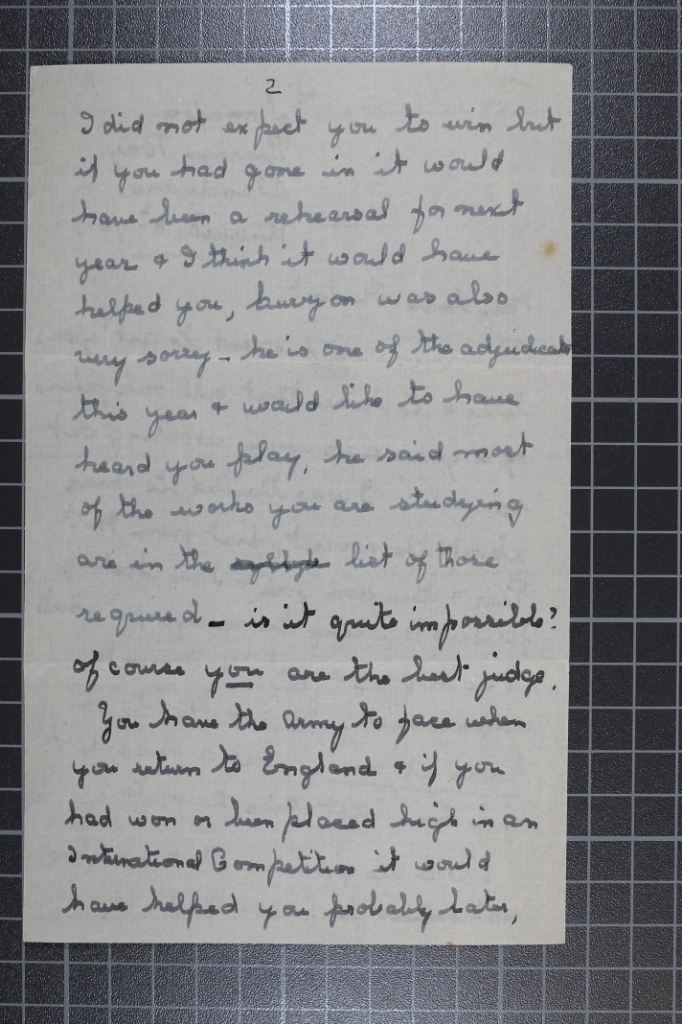 2
I did not expect you to win but
if you had gone in it would
have been a rehearsal for next
year & I think it would have
helped you, was also
very sorry - he is one of the adjudicators
this year & would like to have
heard you play, he said most
of the works you are studying
are in the list of those
required - is it quite impossible?
of course you are the best judge.
You have the army to face when
you return to England & if you
had won or been placed high in an
International Competition it would
have helped you probably later,